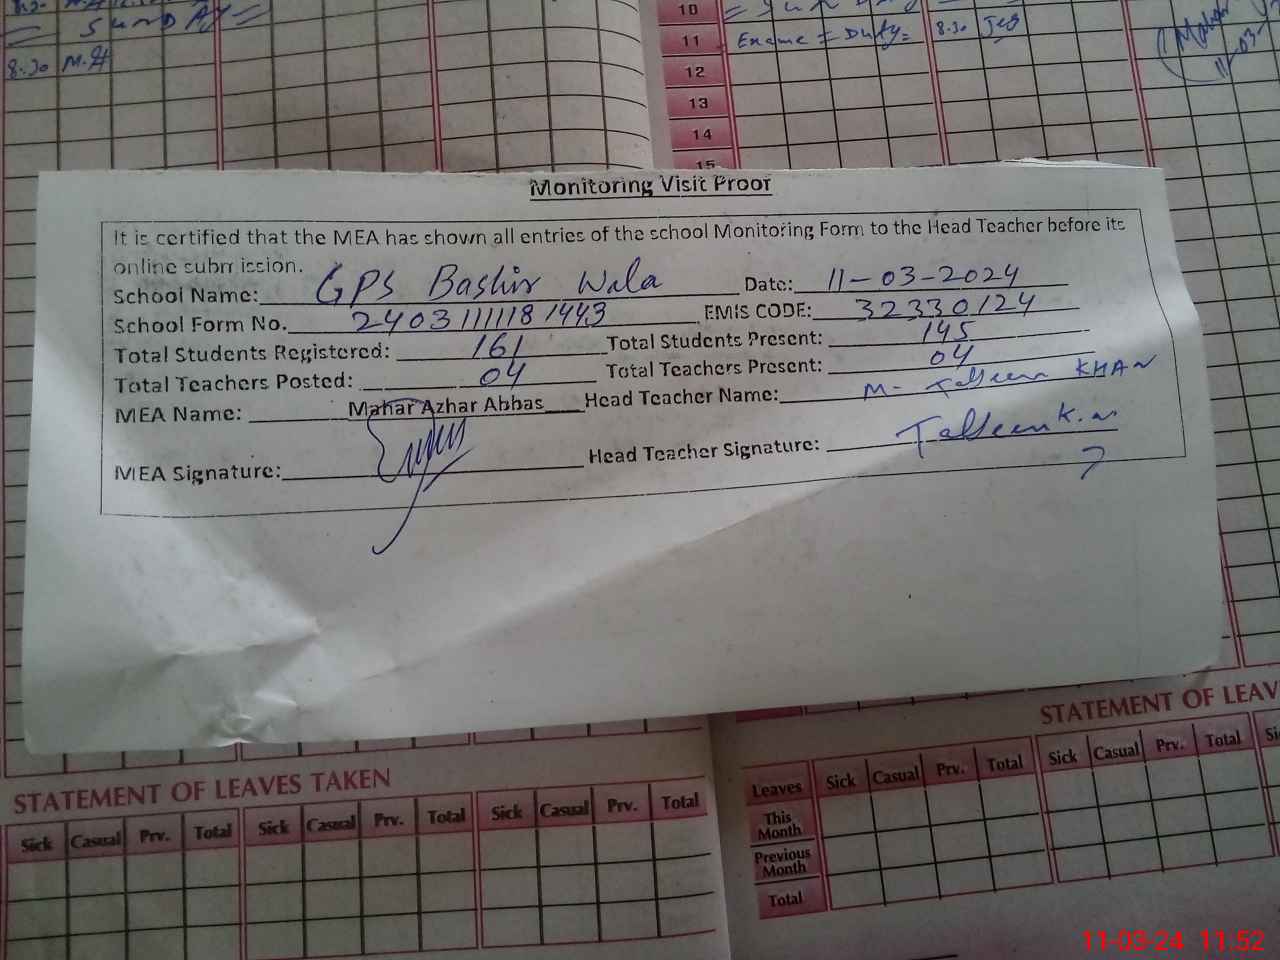 8.30 M.H
= SUNDAY =
8.30 M.H
10
11 Exame = Duty = 8.30
12
13
14
15
11-03-
Monitoring Visit Proof
It is certified that the MEA has shown all entries of the school Monitoring Form to the Head Teacher before its
online submission.
School Name: GPS Bashir Wala Date: 11-03-2024
School Form No. 24031111181443 EMIS CODE: 32330124
Total Students Registered: 161 Total Students Present: 145
Total Teachers Posted: 04 Total Teachers Present: 04
MEA Name: Mahar Azhar Abbas Head Teacher Name: M- KHAN
MEA Signature: Head Teacher Signature:
STATEMENT OF LEAV
STATEMENT OF LEAVES TAKEN
Leaves Sick Casual Prv. Total Sick Casual Prv. Total Si
Sick Casual Prv. Total Sick Casual Prv. Total Sick Casual Prv. Total
This Month
Previous Month
Total
11-03-24 11:52